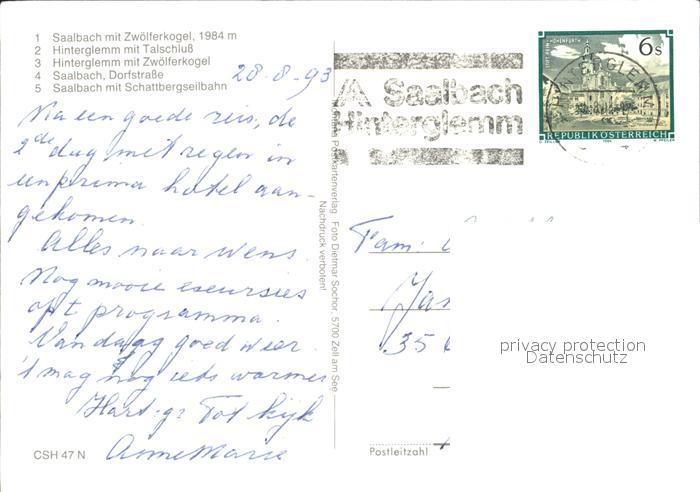 1 Saalbach mit Zwölferkogel, 1984 m
2 Hinterglemm mit Talschluß
3 Hinterglemm mit Zwölferkogel
4 Saalbach, Dorfstraße
5 Saalbach mit Schattbergseilbahn
28-8-93
Na een goede reis, de
2de dag met regen in
een prima hotel aan-
gekomen.
Alles naar wens.
Nog mooie excursies
op 't programma.
Vandaag goed weer
't mag nog iets warmer
Hart. gr. Tot kijk
AnneMarie
CSH 47 N
Postkartenverlag Foto Dietmar Sochor, 5700 Zell am See
Nachdruck verboten!
Saalbach
Hinterglemm
6s
REPUBLIK ÖSTERREICH
HINTERGLEMM
Fam:
35
privacy protection
Datenschutz
Postleitzahl